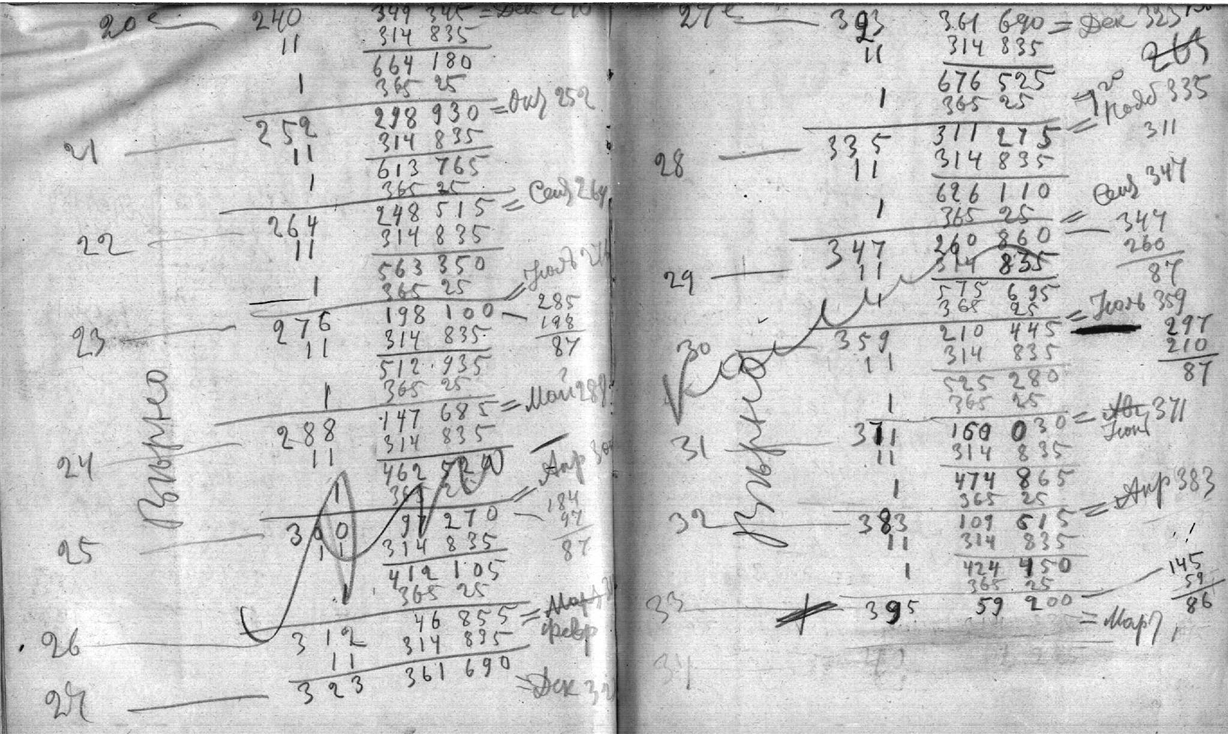 20е 240 349 345 = Дек 240
11 314 835
664 180
1 365 25
21 252 298 930 = Окт 252
11 314 835
613 765
1 365 25
22 264 248 515 = Сент 264
11 314 835
563 350
1 365 25
23 276 198 100
11 314 835
512.935
1 365 25
285
198
87
24 288 147 685 = Май 288
11 314 835
462 520
1 365 25
Апр
25 300 97 270
11 314 835
412 105
1 365 25
184
97
87
26 312 46 855 = Март
февр
11 314 835
27 323 361 690 = Дек 323
Вѣрно
27е 323 361 690 = Дек 323
11 314 835
265
676 525
1 365 25
28 335 311 275 = Нояб 335
311
11 314 835
626 110
1 365 25
29 347 260 860 = Сент 347
11 314 835
575 695
1 365 25
347
260
87
30 359 210 445 = Июль 359
11 314 835
525 280
1 365 25
297
210
87
31 371 160 030 = 371
Июнь
11 314 835
474 865
1 365 25
32 383 109 615 = Апр 383
11 314 835
424 450
1 365 25
145
59
86
33 395 59 200 = Март
34
Вѣрно